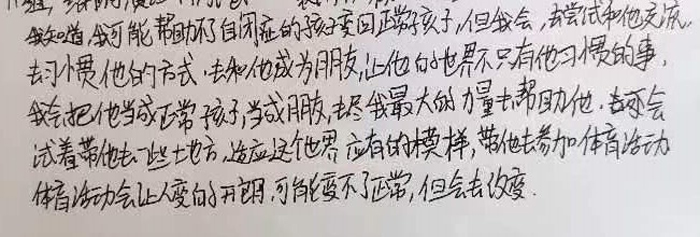 我知道,我可能帮助不了自闭症的孩子变回正常孩子,但我会,去尝试和他交流
去习惯他的方式,去和他成为朋友,让他的世界不只有他习惯的事,
我会把他当成正常孩子,当成朋友,去尽我最大的力量去帮助他,去还会
试着带他去一些地方,适应这个世界应有的模样,带他去参加体育活动
体育活动会让人变的开朗,可能变不了正常,但会去改变.